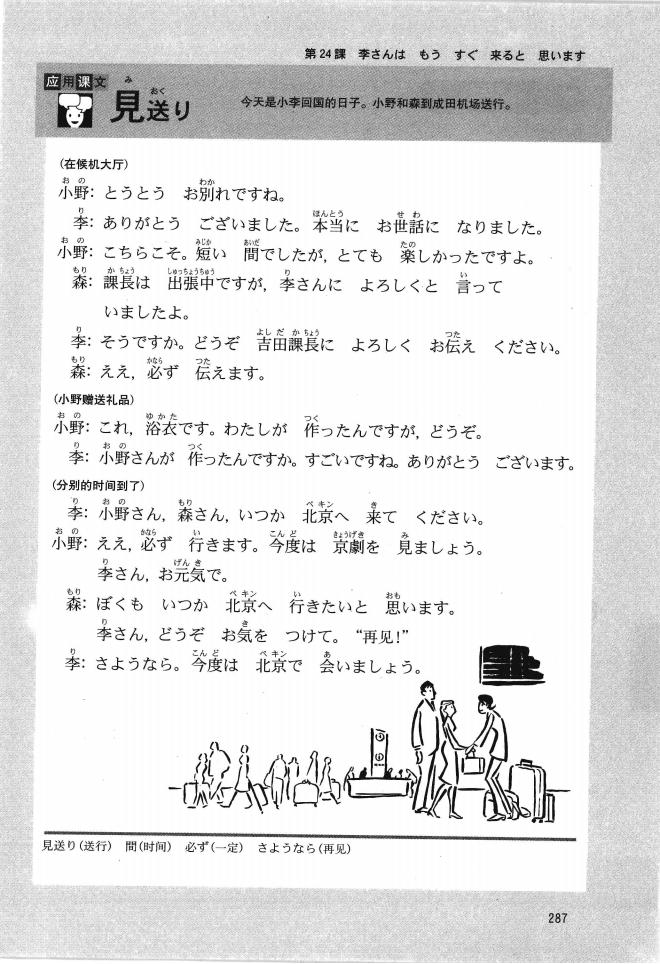 第24課　李さんは　もう　すぐ　来ると　思います
应用课文
見送り
今天是小李回国的日子。小野和森到成田机场送行。
(在候机大厅)
小野: とうとう　お別れですね。
李: ありがとう　ございました。本当に　お世話に　なりました。
小野: こちらこそ。短い　間でしたが, とても　楽しかったですよ。
森: 課長は　出張中ですが, 李さんに　よろしくと　言って
いましたよ。
李: そうですか。どうぞ　吉田課長に　よろしく　お伝え　ください。
森: ええ, 必ず　伝えます。
(小野赠送礼品)
小野: これ, 浴衣です。わたしが　作ったんですが, どうぞ。
李: 小野さんが　作ったんですか。すごいですね。ありがとう　ございます。
(分别的时间到了)
李: 小野さん, 森さん, いつか　北京へ　来て　ください。
小野: ええ, 必ず　行きます。今度は　京劇を　見ましょう。
李さん, お元気で。
森: ぼくも　いつか　北京へ　行きたいと　思います。
李さん, どうぞ　お気を　つけて。“再见!”
李: さようなら。今度は　北京で　会いましょう。
見送り(送行)　間(时间)　必ず(一定)　さようなら(再见)
287